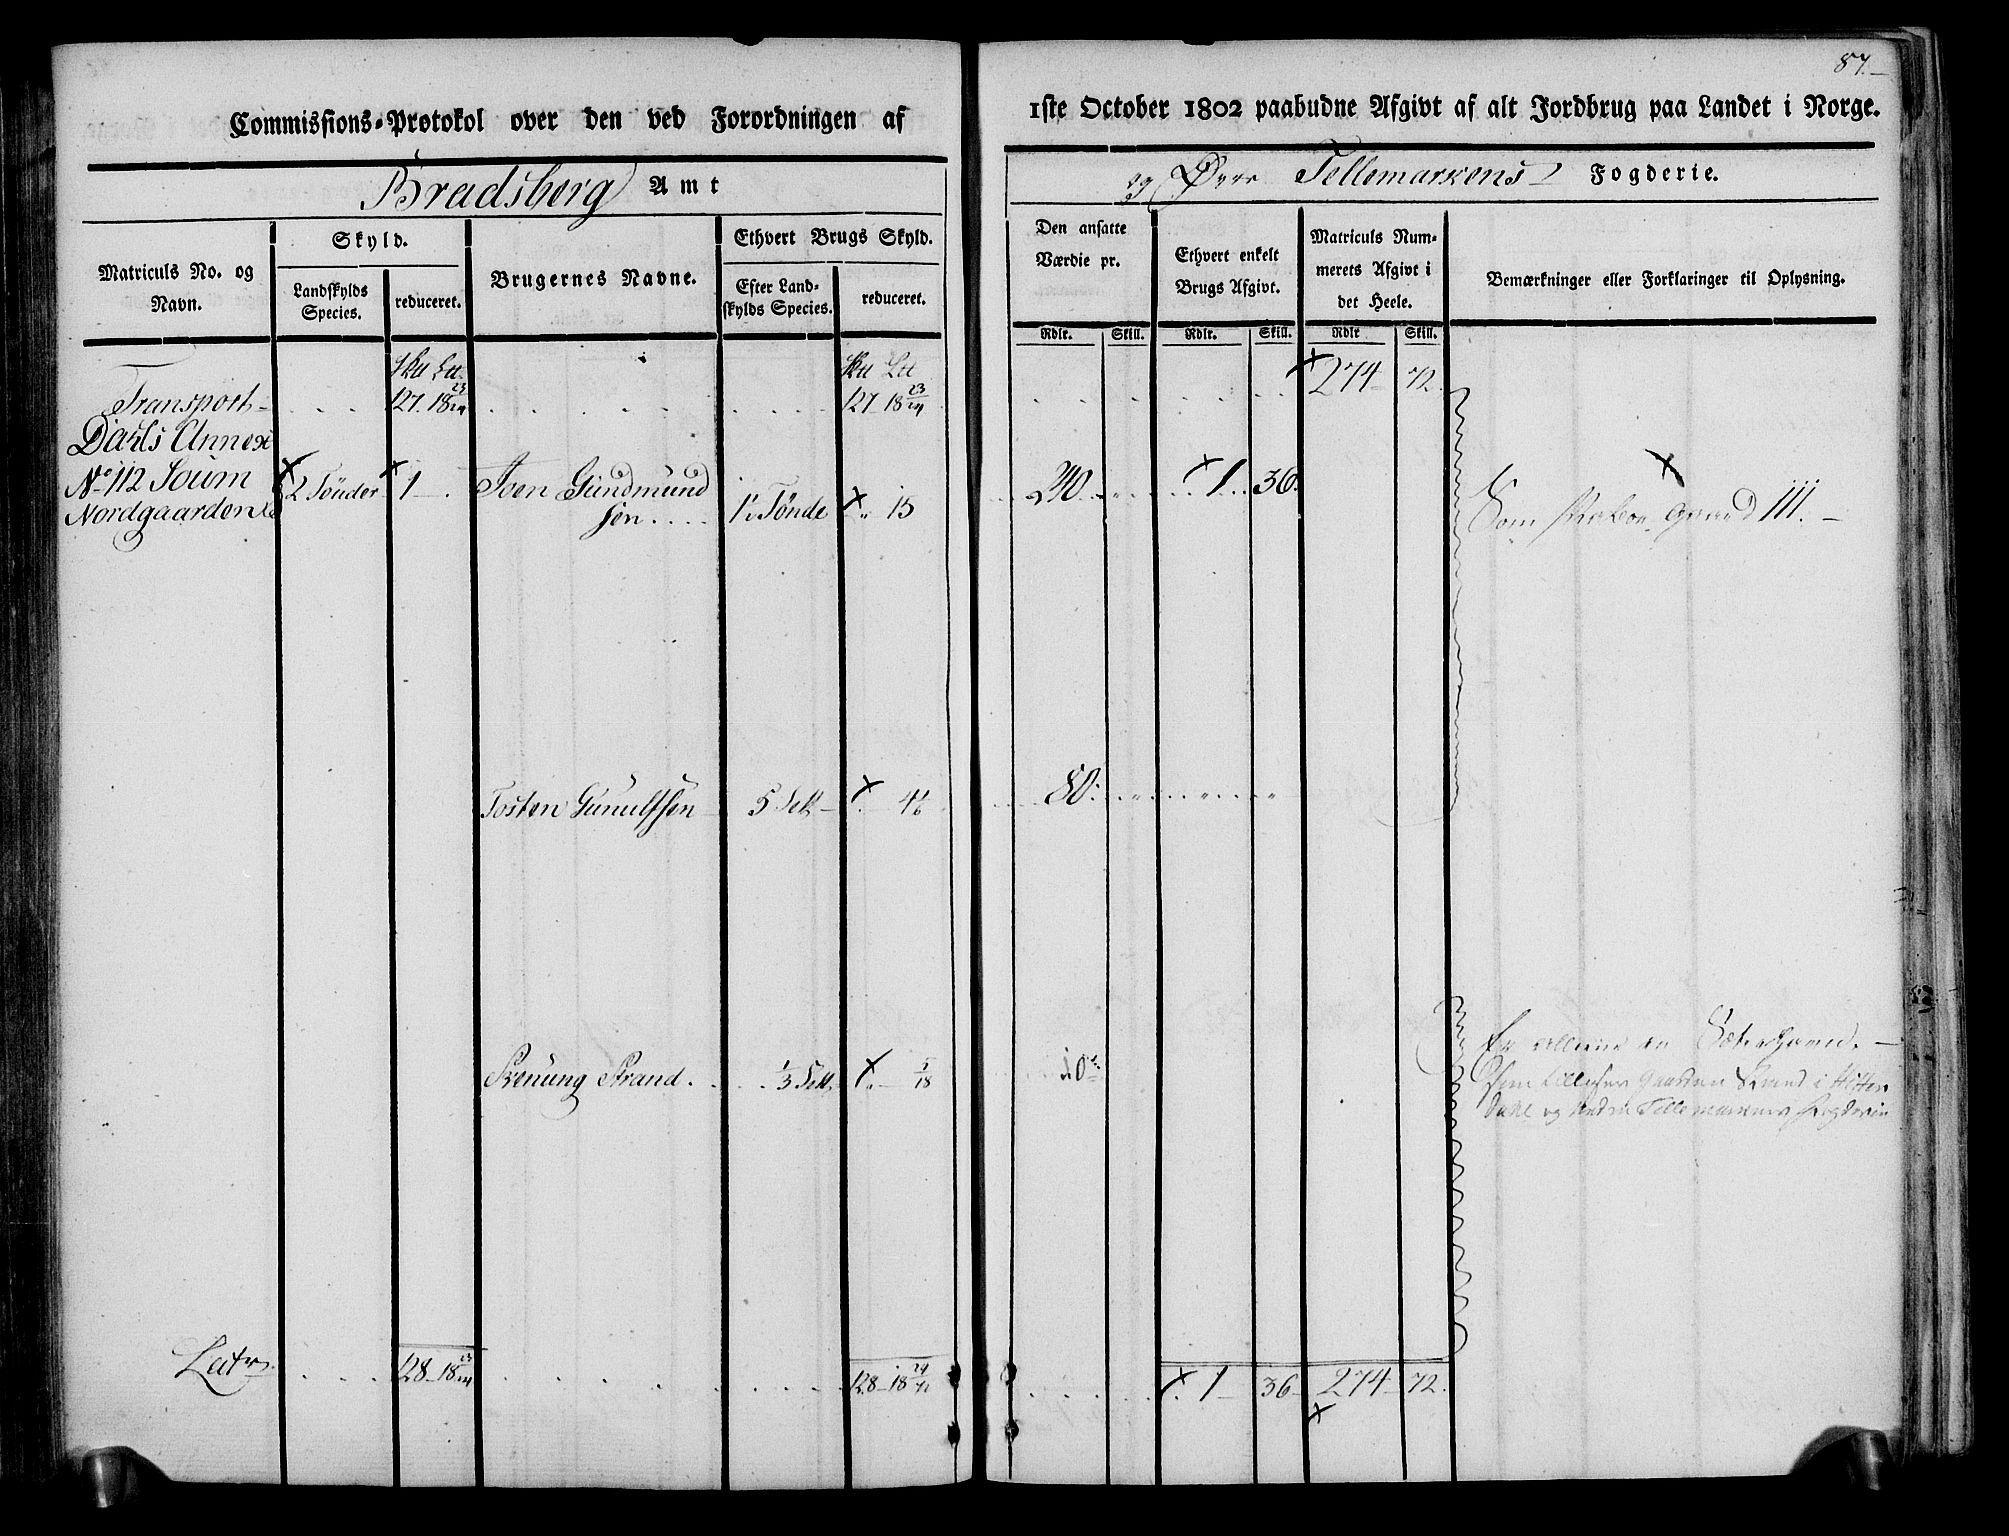 87.
Commissions-Protokol over den ved Forordningen af
1ste October 1802 paabudne Afgivt af alt Jordbrug paa Landet i Norge.
Bradsberg Amt
og Øvre Tellemarkens Fogderie.
Matriculs No. og Navn.
Skyld.
Landskylds Species.
reduceret.
Brugernes Navne.
Ethvert Brugs Skyld.
Efter Landskylds Species.
reduceret.
Den ansatte Værdie pr.
Rdlr. Skill.
Ethvert enkelt Brugs Afgivt.
Rdlr. Skill.
Matriculs Nummerets Afgivt i det Heele.
Rdlr Skill.
Bemærkninger eller Forklaringer til Oplysning.
Transport 127. 18 23/24 127 18 23/24 274 72.
Dahls Annex
No 112 Soum 2 Tönder 1 Iven Gundmund 240 1 36.
Nordgaarden sen 1 Tönde 15 Som grund
Tosten Gunulfsen 5 Sett 4 1/6 80.
Svenung Strand. 1/3 Sett 5/18 10
Er en Sæter
som tilligger Gaarden Strand i Hitter
dahl og Nedre Tellemarkens Fogderie
Latr. 128 18 128 18 1 36 274 72.